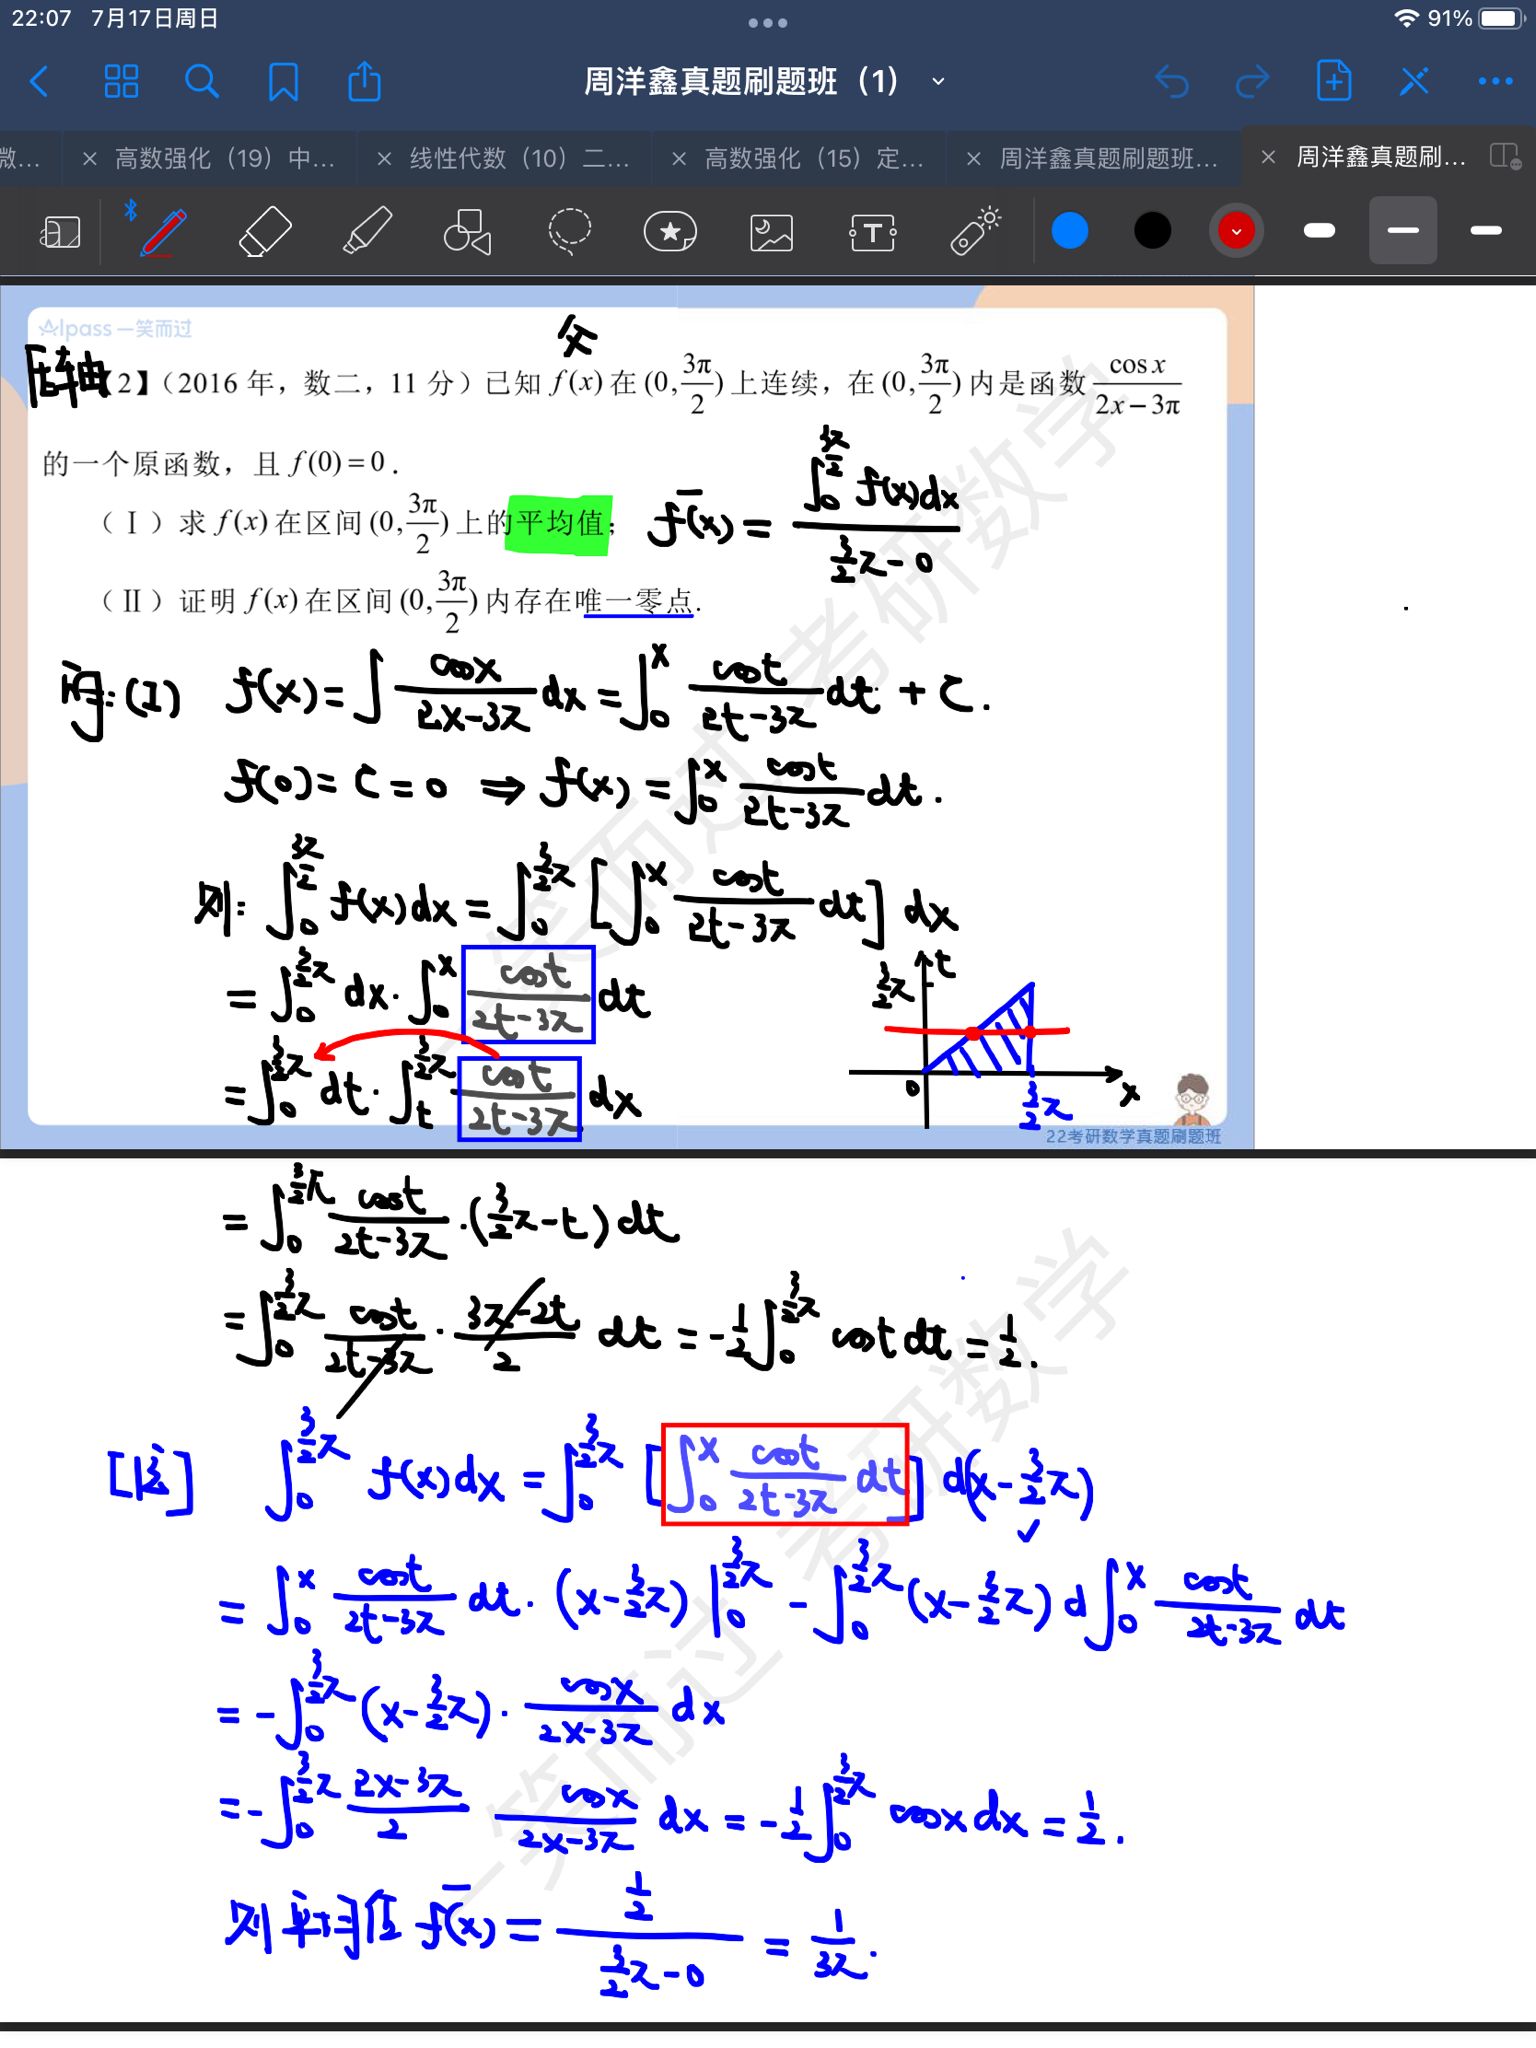 22:07 7月17日周日
91%
周洋鑫真题刷题班（1）
微... × 高数强化（19）中... × 线性代数（10）二... × 高数强化（15）定... × 周洋鑫真题刷题班... × 周洋鑫真题刷...
AIpass 一笑而过
压轴【2】（2016 年，数二，11 分）已知 f(x) 在 (0, 3π/2) 上连续，在 (0, 3π/2) 内是函数 cos x/(2x − 3π)
的一个原函数，且 f(0) = 0 .
（Ⅰ）求 f(x) 在区间 (0, 3π/2) 上的平均值；
f̄(x) = ∫₀^(3π/2) f(x)dx / (3/2 π − 0)
（Ⅱ）证明 f(x) 在区间 (0, 3π/2) 内存在唯一零点.
(I) f(x) = ∫ cosx/(2x−3π) dx = ∫₀^x cost/(2t−3π) dt + C .
f(0) = C = 0 ⇒ f(x) = ∫₀^x cost/(2t−3π) dt .
则: ∫₀^(3π/2) f(x)dx = ∫₀^(3/2 π) [∫₀^x cost/(2t−3π) dt] dx
= ∫₀^(3/2 π) dx · ∫₀^x cost/(2t−3π) dt
= ∫₀^(3/2 π) dt · ∫_t^(3/2 π) cost/(2t−3π) dx
t
3/2 π
0
3/2 π
x
22考研数学真题刷题班
= ∫₀^(3/2 π) cost/(2t−3π) · (3/2 π − t) dt
= ∫₀^(3/2 π) cost/(2t−3π) · (3π−2t)/2 dt = −1/2 ∫₀^(3/2 π) cost dt = 1/2 .
[注] ∫₀^(3/2 π) f(x)dx = ∫₀^(3/2 π) [∫₀^x cost/(2t−3π) dt] d(x − 3/2 π)
= ∫₀^x cost/(2t−3π) dt · (x − 3/2 π) |₀^(3/2 π) − ∫₀^(3/2 π) (x − 3/2 π) d ∫₀^x cost/(2t−3π) dt
= −∫₀^(3/2 π) (x − 3/2 π) · cosx/(2x−3π) dx
= −∫₀^(3/2 π) (2x−3π)/2 cosx/(2x−3π) dx = −1/2 ∫₀^(3/2 π) cosx dx = 1/2 .
则平均值 f̄(x) = (1/2)/(3/2 π − 0) = 1/(3π) .
一笑而过 考研数学
一笑而过 考研数学